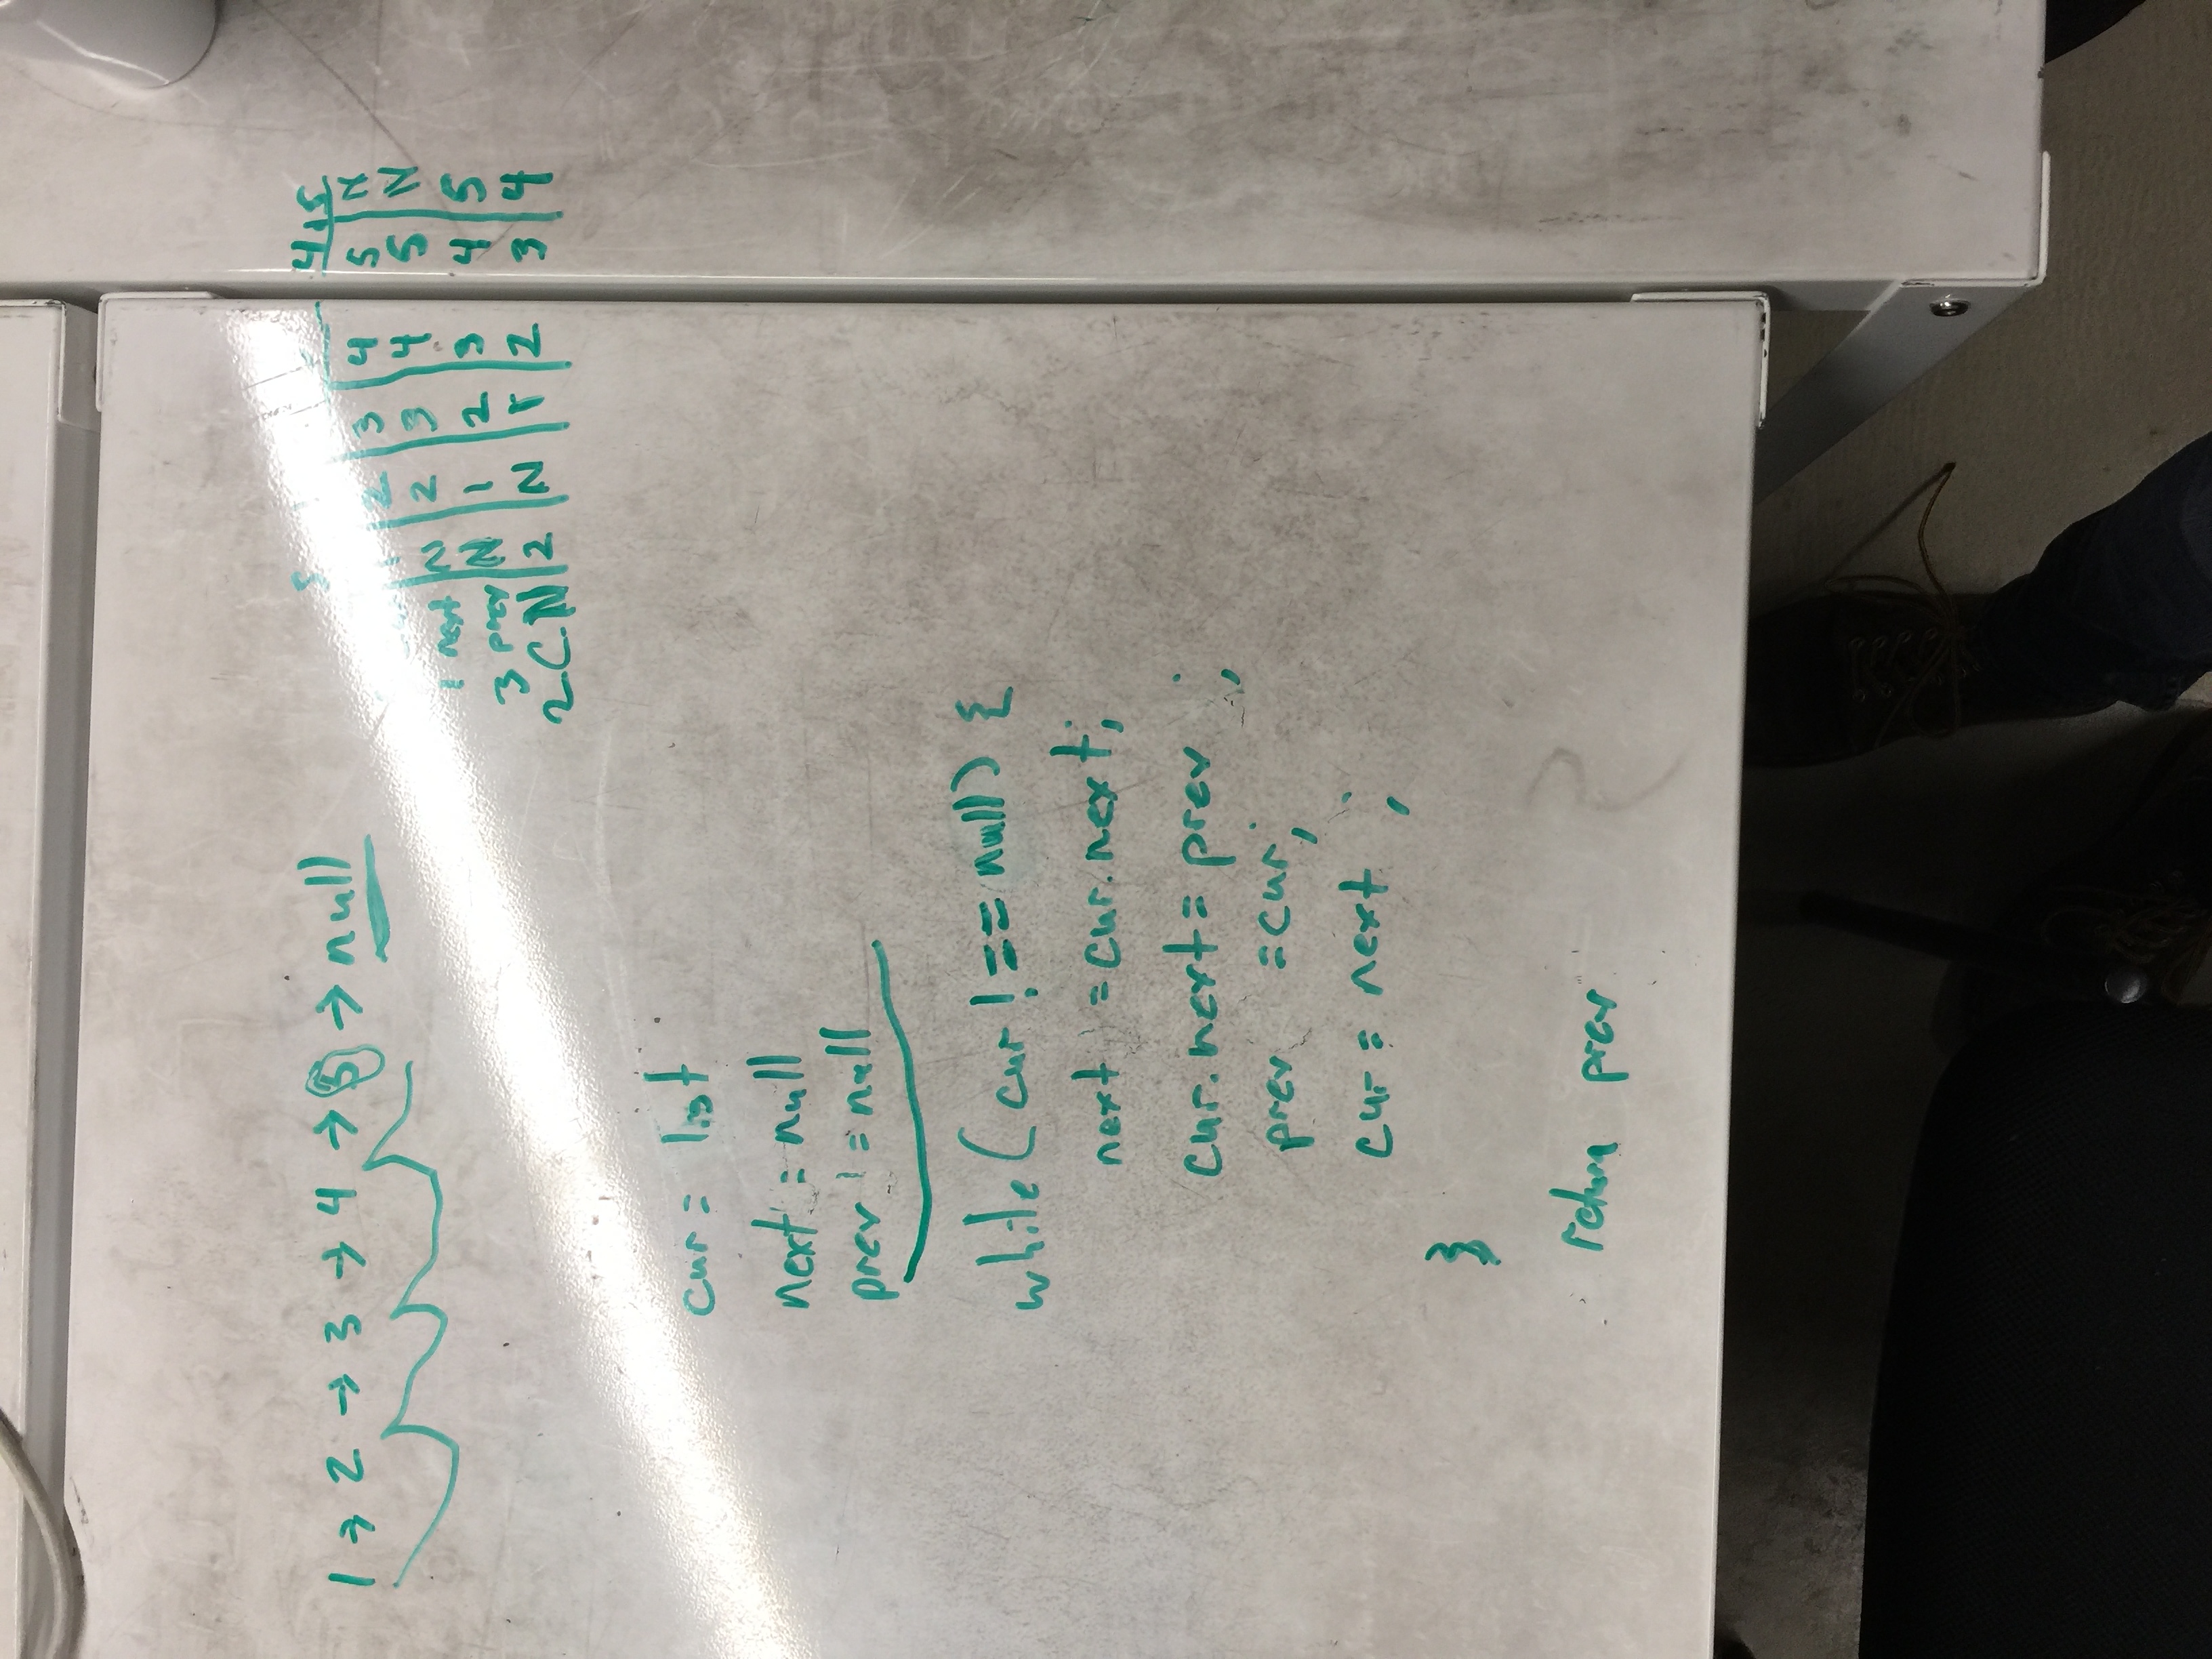 1 → 2 → 3 → 4 → 5 → null
4 5
2 3 4 5 N
1 next N 2 3 4 5 N
3 prev N 1 2 3 4 5
2 C.N 2 N 1 2 3 4
cur = list
next = null
prev = null
while (cur !== null) {
next = cur.next;
cur.next = prev ;
prev = cur;
cur = next ;
}
return prev